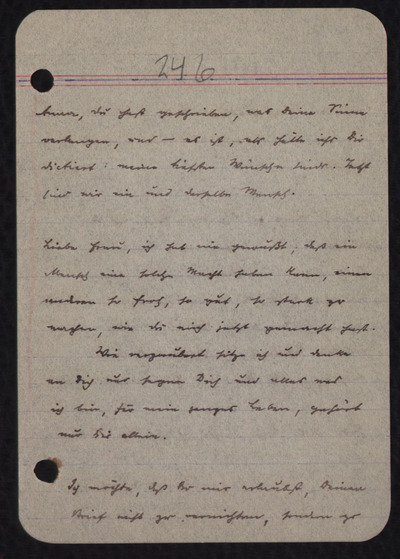 246
kann, du hast geschrieben, was deine Sinne
verlangen, nur — es ist, als hätte ich's Dir
diktiert: meine tiefsten Wünsche sind's. Jetzt
sind wir ein und derselbe Mensch.
Liebe Frau, ich hab nie gewußt, daß ein
Mensch eine solche Macht haben kann, einen
anderen so froh, so gut, so stark zu
machen, wie du mich jetzt gemacht hast.
Wie verzaubert sitze ich und denke
an Dich, nur segne Dich und alles was
ich bin, für mein ganzes Leben, gehört
nur Dir allein.
Ich möchte, daß Du mir erlaubst, Deinen
Brief nicht zu vernichten, sondern zu